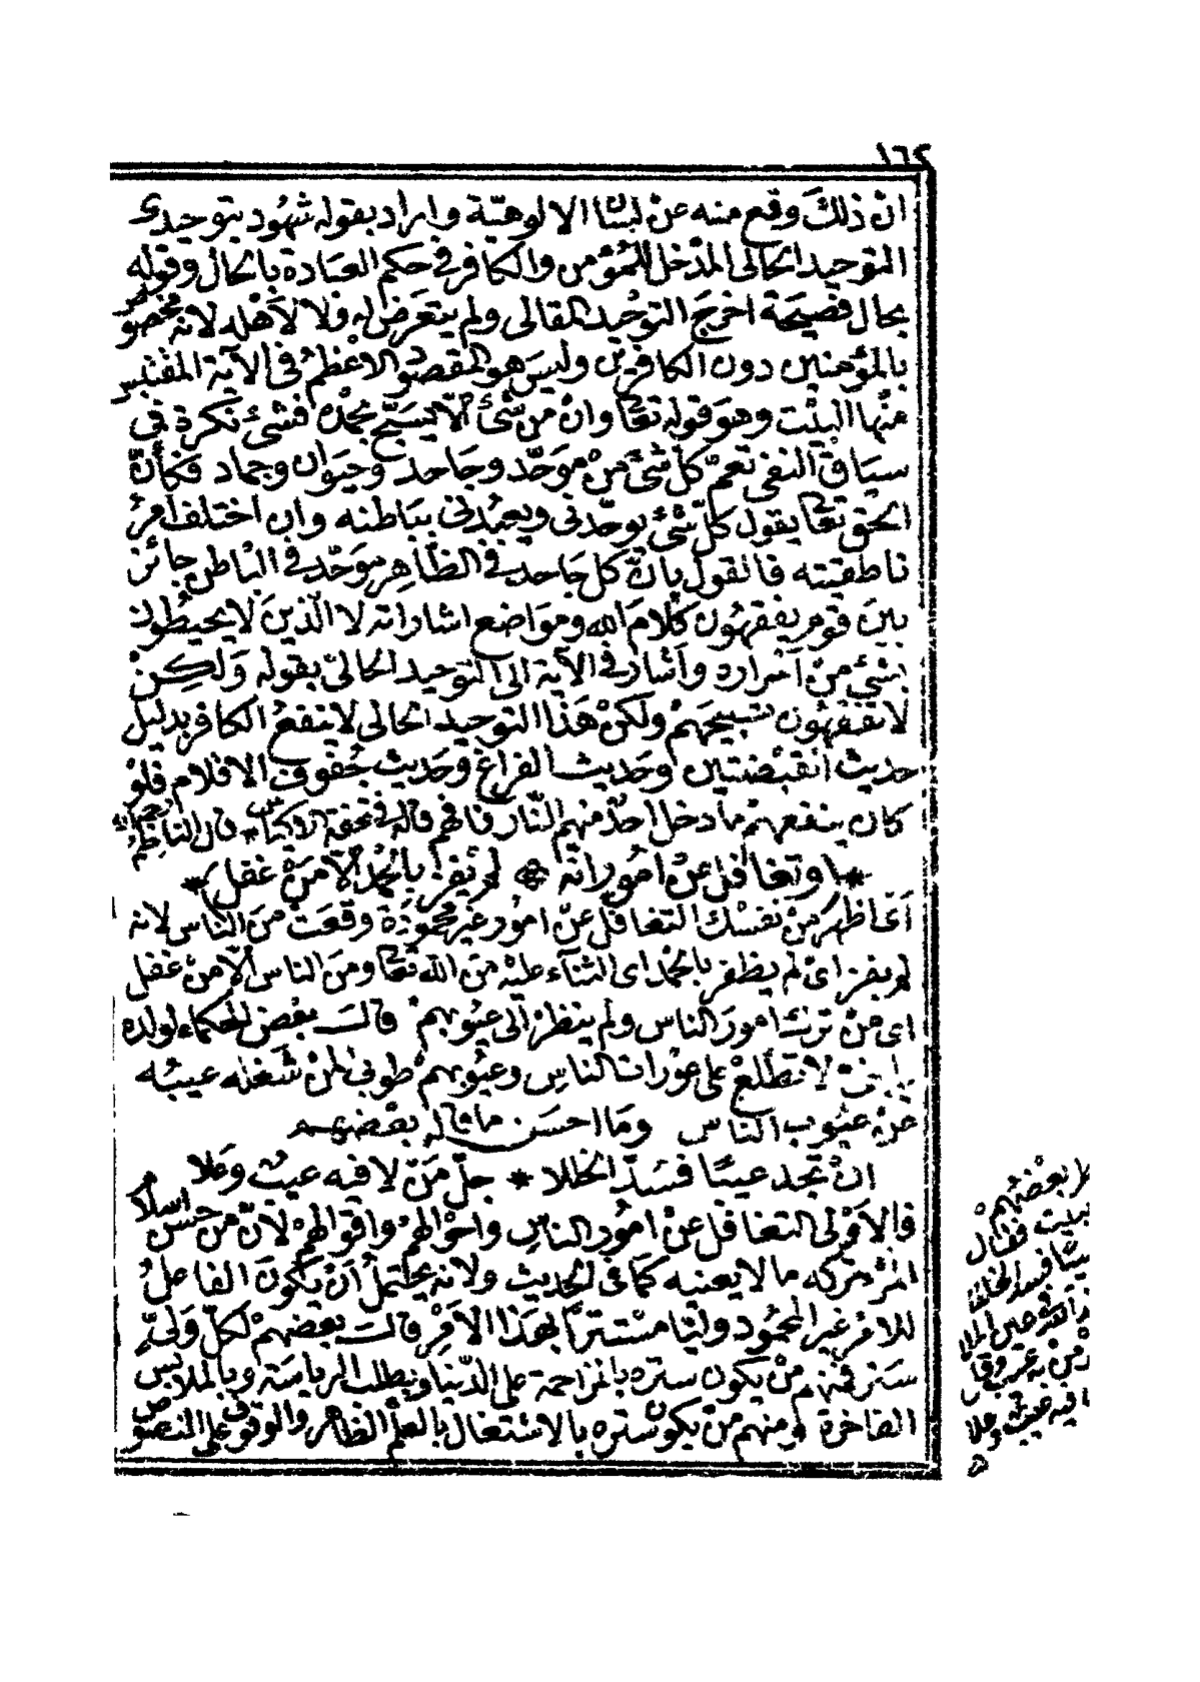 ١٦٢
ان ذلك وقع منه عن لسان الالوهية واراد بقوله شهود بتوحيدى
التوحيد الحالى المدخل للمؤمن والكافر فى حكم العبادة بالحال وقوله
بحال فصيحة اخرج التوحيد المقالى ولم يتعرض له فلا لاهله لانه مخصوص
بالمؤمنين دون الكافرين وليس هو المقصود الاعظم فى الآية المقتبس
منها البيت وهو قوله تعا وان من شئ الا يسبح بحمده فشئ نكرة فى
سياق النفى تعم كل شئ من موحد وجاحد وحيوان وجماد فكأن
الحق تعا يقول كل شئ يوحدنى ويعبدنى بباطنه وان اختلف امر
ناطقيته فالقول بان كل جاحد فى الظاهر موحد فى الباطن جائز
بين قوم يفقهون كلام الله ومواضع اشاراته لا الذين لا يحيطون
بشئ من اسراره واشار فى الآية الى التوحيد الحالى بقوله ولكن
لا تفقهون تسبيحهم ولكن هذا التوحيد الحالى لا ينفع الكافر بدليل
حديث القبضتين وحديث الفراغ وحديث جفوف الاقلام فلو
كان ينفعهم ما دخل احد منهم النار فافهم قاله فى تحفة الاكياس قال الناظم رحمه الله
* (وتغافل عن امور انه ۞ لم يفز بالحمد الا من غفل) *
اى اظهر من نفسك التغافل عن امور غير محمودة وقعت من الناس لانه
لم يفز اى لم يظفر بالحمد اى الثناء عليه من الله تعا ومن الناس الا من غفل
اى من ترك امور الناس ولم ينظر الى عيوبهم قالت بعض الحكماء لولده
يا بنى لا تطلع على عورات الناس وعيوبهم طوبى لمن شغله عيبه
عن عيوب الناس وما احسن ما قاله بعضهم
ان تجد عيبا فسد الخللا * جل من لا فيه عيب وعلا
فالاولى التغافل عن امور الناس واحوالهم واقوالهم لان من حسن اسلام
المرء تركه ما لا يعنيه كما فى الحديث ولانه يحتمل ان يكون الفاعل
للامر غير المحمود وليا مستترا بهذا الامر قالت بعضهم لكل ولى
ستر فمنهم من يكون ستره بالمزاحمة على الدنيا وبطلب الرياسة وبالملابس
الفاخرة ومنهم من يكون ستره بالاشتغال بالعلم الظاهر والوقوف على النصوص
بعضهم
البيت فقال
عيبا فسد الخللا
من به عيب وقل
فيه عيب وعلا